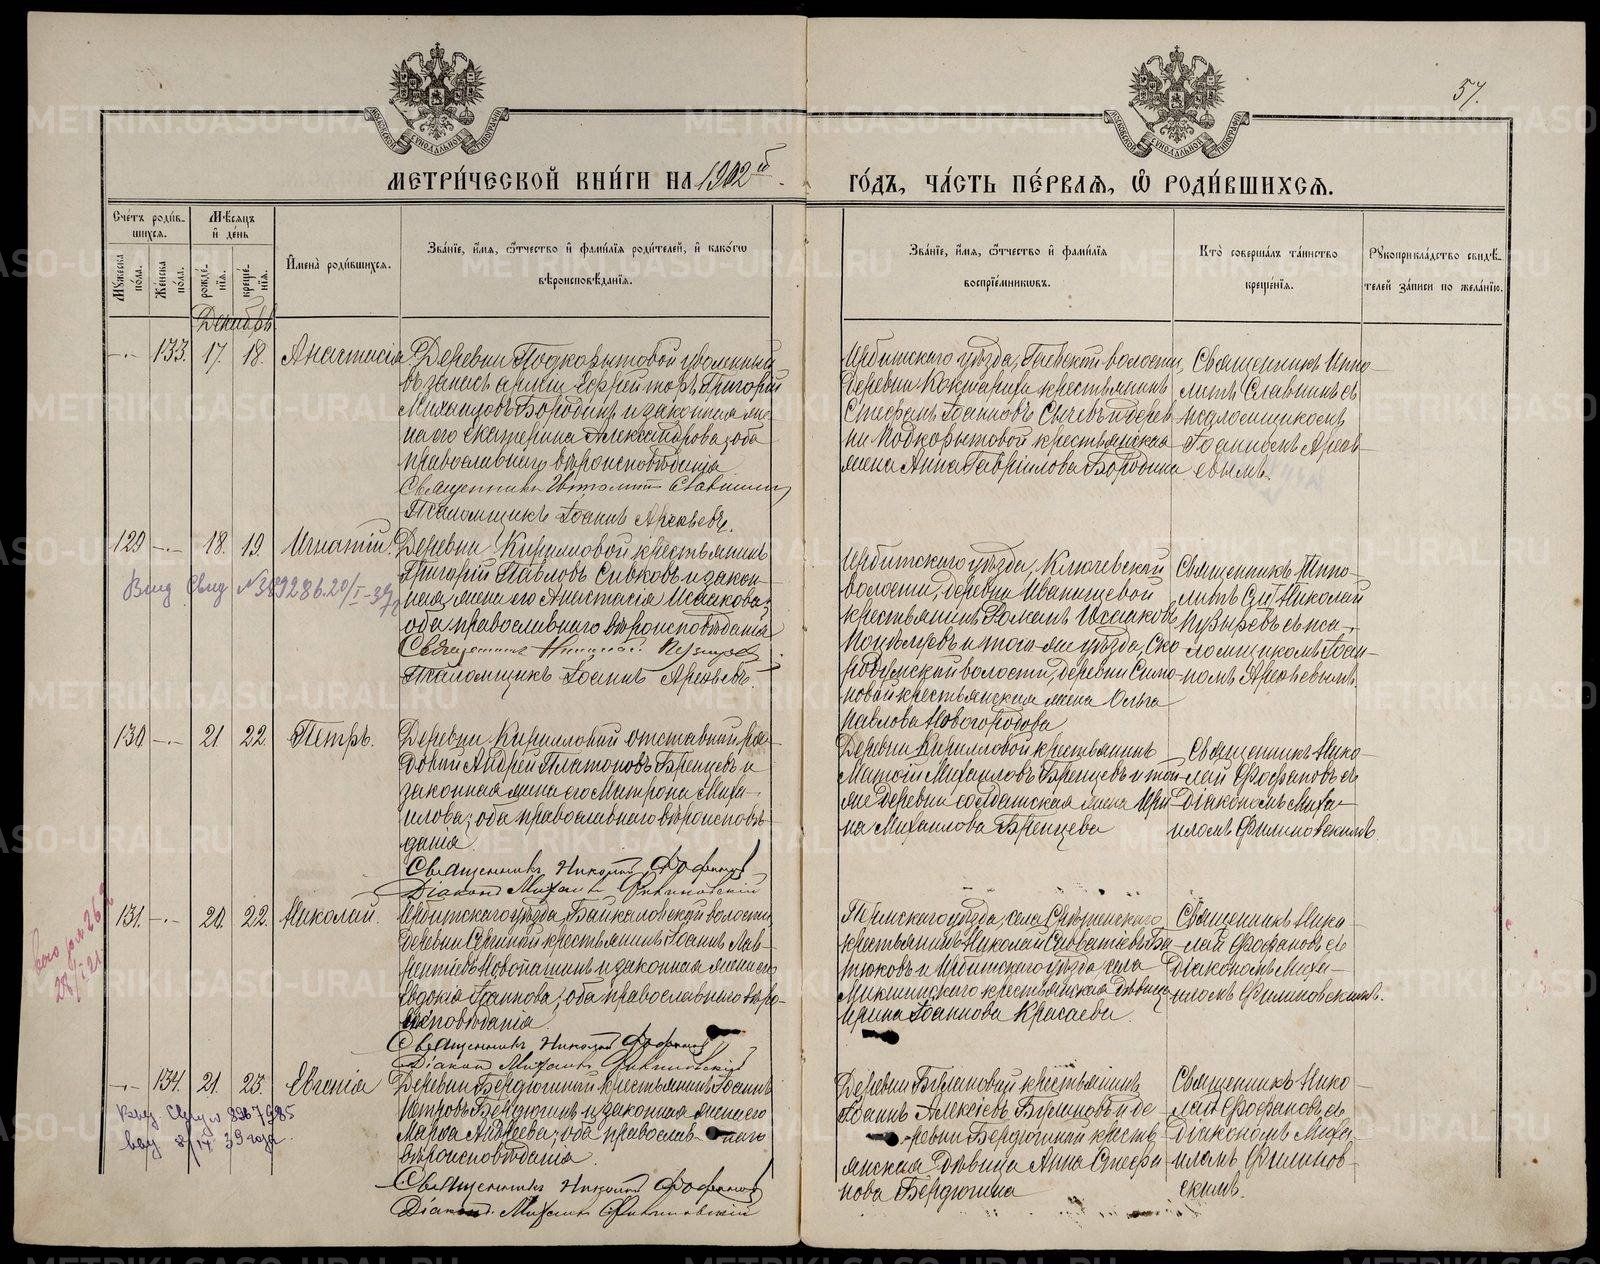 57.
МОСКОВСКОЙ СѴНОДАЛЬНОЙ ТИПОГРАФІИ
МОСКОВСКОЙ СѴНОДАЛЬНОЙ ТИПОГРАФІИ
МЕТРИ́ЧЕСКОЙ КНИ́ГИ НА 1902й
ГО́ДЪ, ЧА́СТЬ ПЕ́РВАЯ, Ѽ РОДИ́ВШИХСЯ.
Сче́тъ роди́в-
шихся.
Мужеска по́ла.
Же́нска по́ла.
Мѣ́сяцъ
и҆ де́нь
рожде́-
нїя.
креще́-
нїя.
И҆мена̀ роди́вшихся.
Зва́нїе, и҆́мя, ѻ҆́тчество и҆ фами́лїя роди́телей, и҆ како́гѡ
вѣроисповѣ́данїя.
Зва́нїе, и҆́мя, ѻ҆́тчество и҆ фами́лїя
воспрїе́мникѡвъ.
Кто̀ соверша́лъ та́инство
креще́нїя.
Рукоприкла́дство свидѣ́-
телей за́писи по жела́нїю.
Декабрь
133. 17. 18. Анастасія
Деревни Подкорытовой уволенный
въ запасъ арміи Ефрейторъ Григорій
Михаиловъ Бородинъ и законная же-
на его Екатерина Александрова; оба
православнаго вѣроисповѣданія.
Священникъ Ипполитъ Славнинъ
Псаломщикъ Іоаннъ Арефьевъ.
Ирбитскаго уѣзда, волости,
деревни крестьянинъ
Стефанъ Іоанновъ Сычевъ и дерев-
ни Подкорытовой крестьянская
жена Анна Гавріилова Бородина
Священникъ Иппо-
литъ Славнинъ съ
псаломщикомъ
Іоанномъ Арефь-
евымъ.
129 18. 19. Игнатій.
Деревни Кирилловой крестьянинъ
Григорій Павловъ Сивковъ и закон-
ная жена его Анастасія Исаакова;
оба православнаго вѣроисповѣданія
Священникъ Николай Пузыревъ
Псаломщикъ Іоаннъ Арефьевъ.
Ирбитскаго уѣзда, Ключевской
волости, деревни Иванищевой
крестьянинъ Романъ Исааковъ
и того-же уѣзда, Ско-
родумской волости, деревни
новой крестьянская жена Ольга
Павлова Новогородова
Священникъ Иппо-
литъ Николай
Пузыревъ съ пса-
ломщикомъ Іоан-
номъ Арефьевымъ.
Выд Свид № 389286. 20/I-37
130 21 22. Петръ.
Деревни Кирилловой отставной ря-
довой Андрей Платоновъ Бренцевъ и
законная жена его Матрона Миха-
илова; оба православнаго вѣроисповѣ-
данія.
Священникъ Николай Фофановъ
Діаконъ Михаилъ Филиновскій
Деревни Кирилловой крестьянинъ
Матѳій Михаиловъ Бренцевъ и той-
же деревни солдатская жена Ири-
на Михаилова Бренцева
Священникъ Нико-
лай Фофановъ съ
Діакономъ Миха-
иломъ Филиновскимъ
131 20. 22. Николай.
Ирбитскаго уѣзда, Байкаловской волости,
деревни крестьянинъ Іоаннъ Лав-
рентіевъ Новопашинъ и законная жена его
Евдокія Іоаннова; оба православнаго вѣро-
исповѣданія.
Священникъ Николай Фофановъ
Діаконъ Михаилъ Филиновскій
Пермскаго уѣзда, села
крестьянинъ Николай Савватіевъ Ба-
тюковъ и Ирбитскаго уѣзда села
крестьянская дѣвица
Ирина Іоаннова Красаева.
Священникъ Нико-
лай Фофановъ съ
Діакономъ Миха-
иломъ Филиновскимъ.
28/I 21
134. 21. 23. Евгенія
Деревни Бердюгиной крестьянинъ Іоаннъ
Петровъ Бердюгинъ и законная жена его
Марѳа Андреева; оба православнаго
вѣроисповѣданія.
Священникъ Николай Фофановъ
Діаконъ Михаилъ Филиновскій
Деревни Бурлановой крестьянинъ
Іоаннъ Алексіевъ и де-
ревни Бердюгиной кресть-
янская дѣвица Анна Стефа-
нова Бердюгина
Священникъ Нико-
лай Фофановъ съ
Діакономъ Миха-
иломъ Филинов-
скимъ.
39 года
METRIKI.GASO-URAL.RU